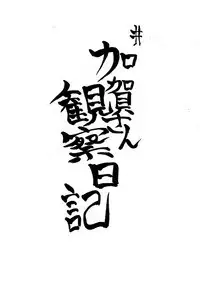 加賀さん
観察日記